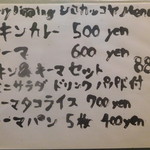 シバカッコヤ Menu
キンカレー 500 yen
ーマ 600 yen
キン&キーマセット 88
ニサラダ ドリンク パパド付
ーマタコライス 900 yen
ーマパン 5枚 400 yen